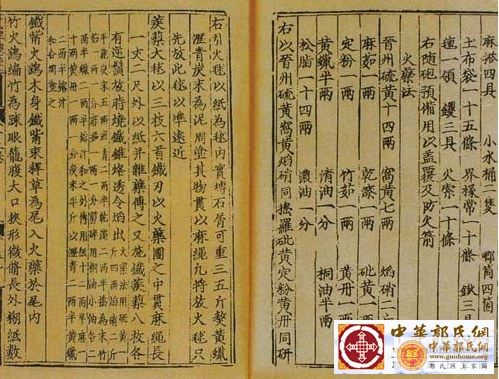 麻搭四具 小水桶二隻 唧筒四箇
土布袋一十五條 界椽索一十條 鍬三具
氊一領 钁三具 火索一十條
右隨砲預備用以蓋覆及防火箭
火藥法
晉州硫黃十四兩 窩黃七兩 焰硝二斤半
麻茹一兩 乾漆一兩 砒黃一兩
定粉一兩 竹茹一兩 黃丹一兩
黃蠟半兩 清油一分 桐油半兩
松脂一十四兩 濃油一分
右以晉州硫黃窩黃焰硝同擣羅砒黃定粉黃丹同研
右引火毬以紙為毬內實塼石屑可重三五斤熬黃蠟
瀝青炭末為泥周塗其物貫以麻繩凡將放火毬只
先放此毬以準遠近
蒺藜火毬以三枝六首鐵刃以火藥團之中貫麻繩長
一丈二尺外以紙并雜藥傅之又施鐵蒺藜八枚各
有逆鬚放時燒鐵錐烙透令焰出 火藥法用硫黃一斤四兩焰硝二斤
半麤炭末五兩瀝青二兩半乾漆二兩半擣為末竹茹一兩一分麻茹一兩一分剪碎用桐油小油各
二兩半蠟二兩半鎔汁和之傅用紙十二兩半麻一十兩黃丹一兩一分炭末半斤以瀝青二兩半黃蠟
二兩半鎔汁和合周塗之
鐵觜火鷂木身鐵觜束稈草為尾入火藥於尾內
竹火鷂編竹為疎眼籠腹大口狹形微脩長外糊紙數
中華郭氏網
www.guohome.org
中華郭氏網
www.guohome.org